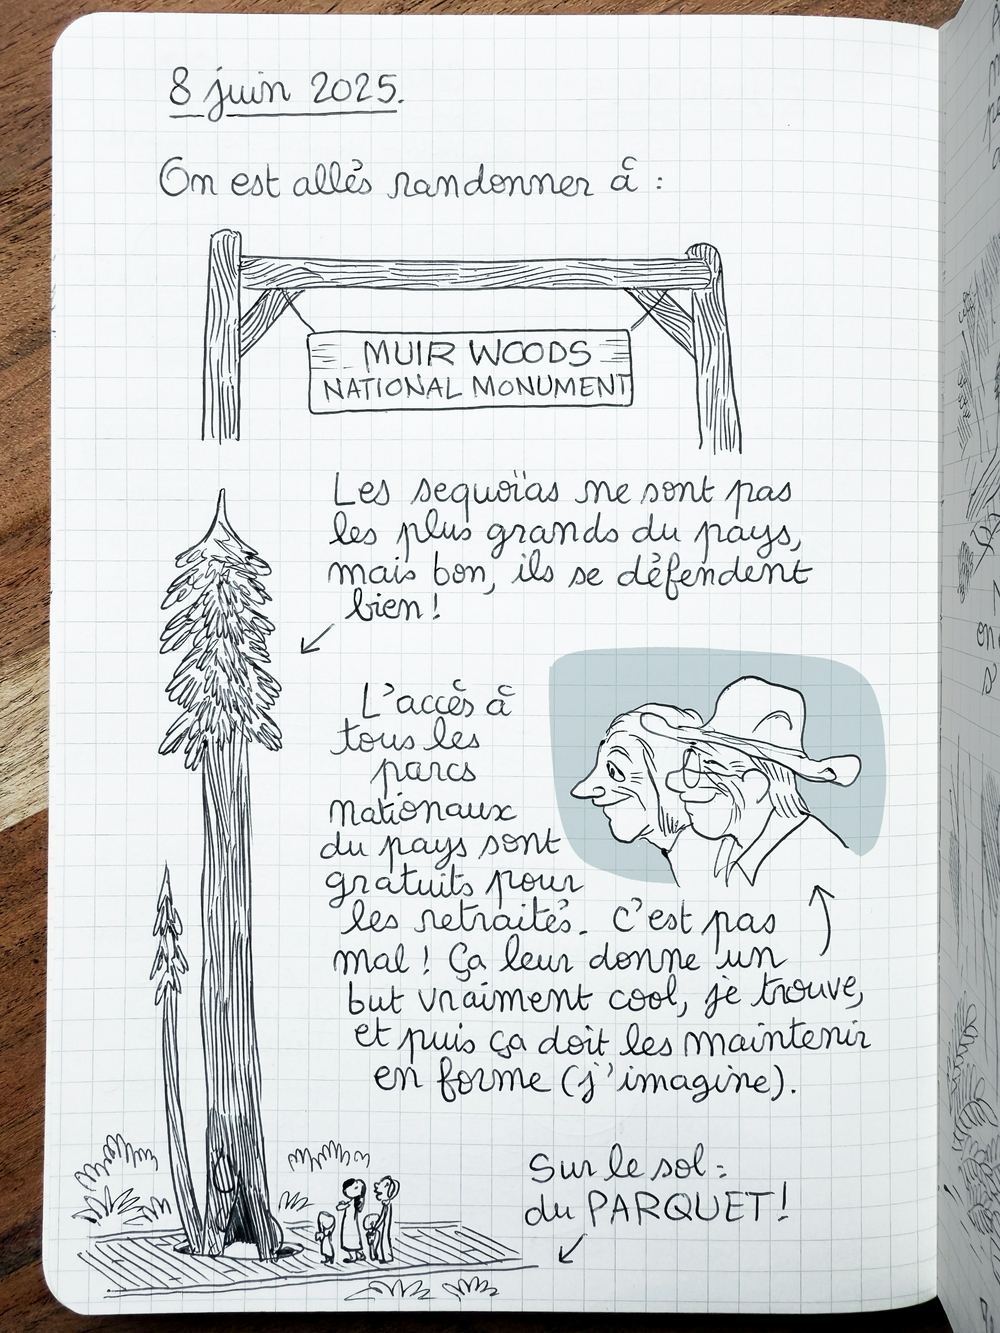 8 juin 2025.
On est allés randonner à :
MUIR WOODS
NATIONAL MONUMENT
Les sequoïas ne sont pas
les plus grands du pays,
mais bon, ils se défendent
bien !
L'accès à
tous les
parcs
nationaux
du pays sont
gratuits pour
les retraités. C'est pas
mal ! Ça leur donne un
but vraiment cool, je trouve,
et puis ça doit les maintenir
en forme (j'imagine).
Sur le sol :
du PARQUET !